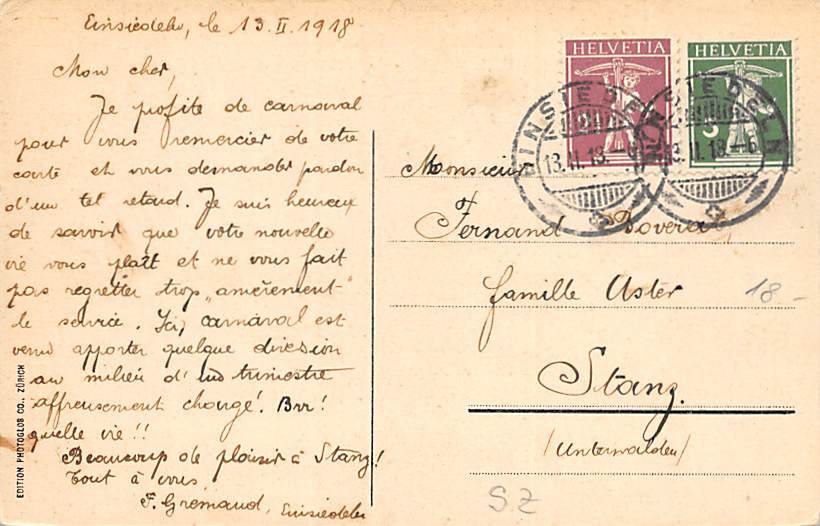 Einsiedeln, le 13. II. 1918
Mon cher,
Je profite de carnaval
pour vous remercier de votre
carte et vous demander pardon
d'un tel retard. Je suis heureux
de savoir que votre nouvelle
vie vous plaît et ne vous fait
pas regretter trop „amèrement"
le service. Ici, carnaval est
venu apporter quelque diversion
au milieu d'un trimestre
affreusement chargé! Brr!
quelle vie!!
Beaucoup de plaisir à Stanz!
Tout à vous
F. Gremaud, Einsiedeln
EDITION PHOTOGLOB CO., ZÜRICH
HELVETIA
HELVETIA
EINSIEDELN
13.II.18.–6
EINSIEDELN
13.II.18.–6
Monsieur
Fernand Dovera
famille Uster
18 -
Stanz.
(Unterwalden)
SZ